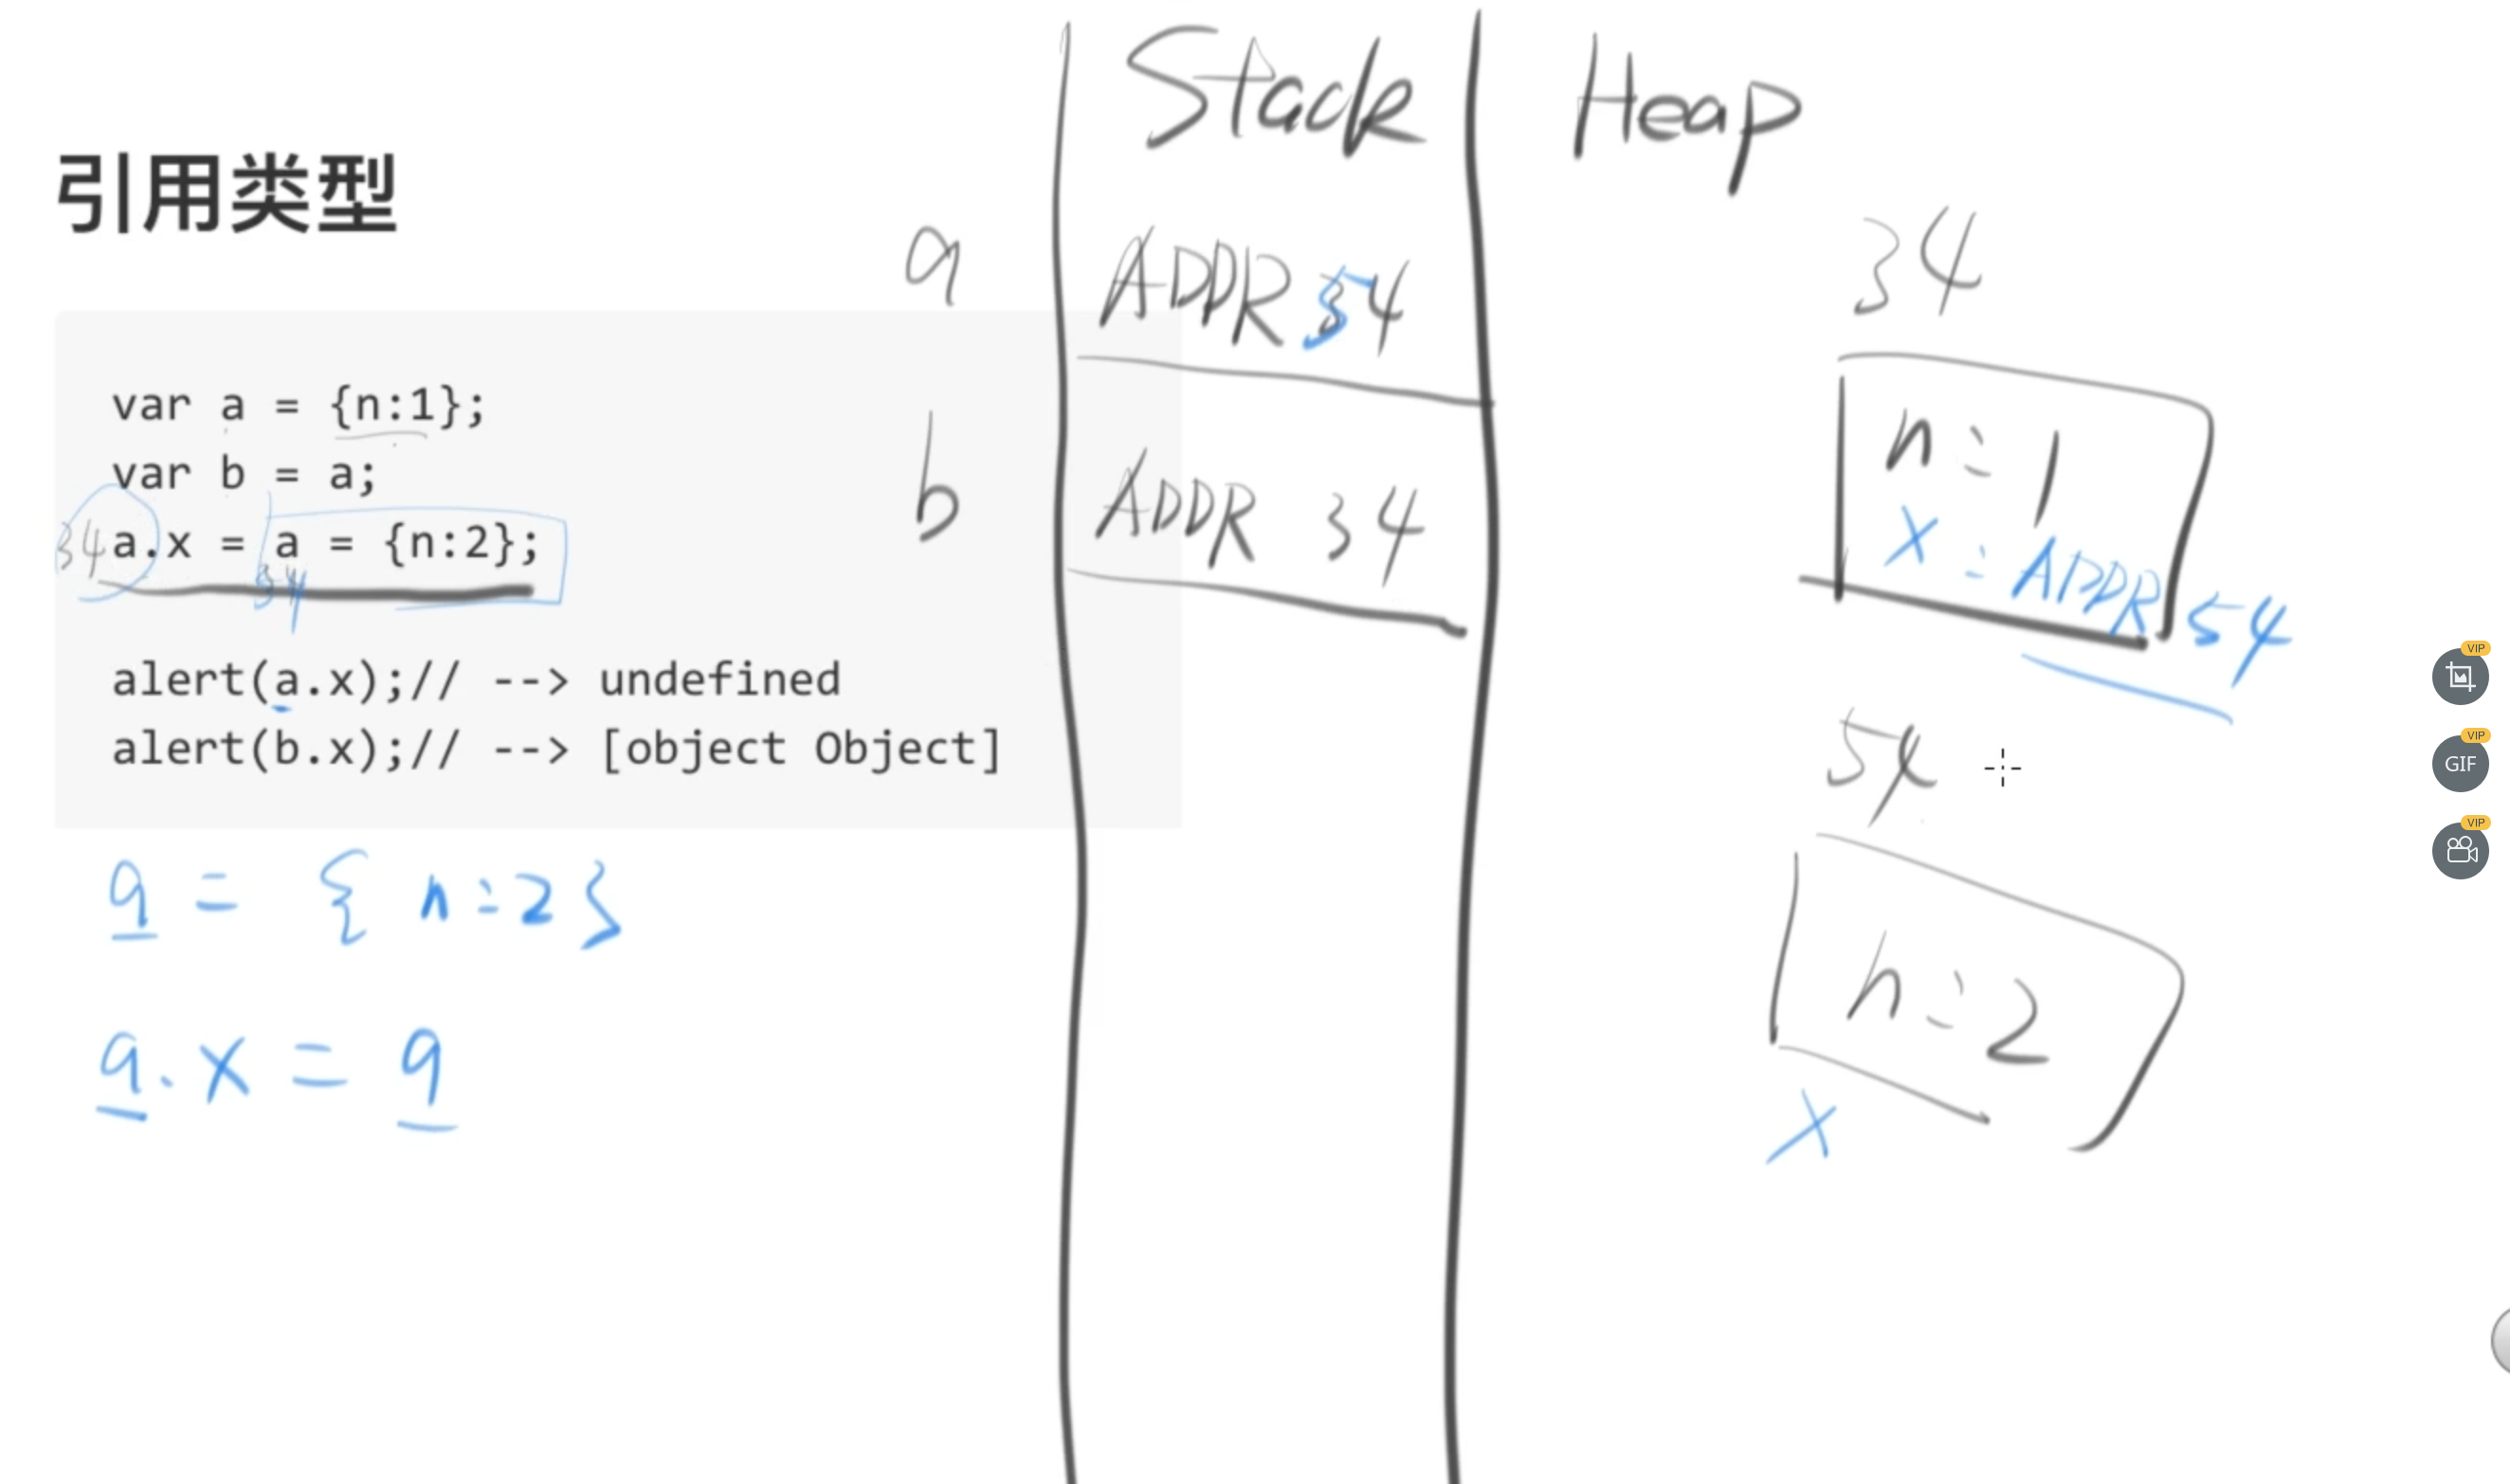 引用类型
var a = {n:1};
var b = a;
34 a.x = a = {n:2};
54
alert(a.x);// --> undefined
alert(b.x);// --> [object Object]
a = { n:2 }
a.x = a
Stack
a ADDR 54
b ADDR 34
Heap
34
n:1
x:ADDR 54
54
n:2
x
VIP
VIP
GIF
VIP